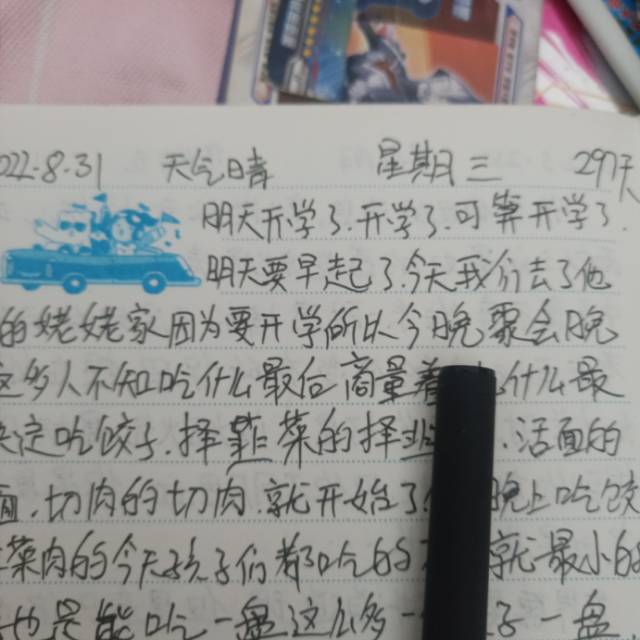 022.8.31 天气晴 星期三 297天
明天开学了.开学了.可算开学了.
明天要早起了.今天我们去了他
的姥姥家因为要开学所以今晚聚会晚
这多人不知吃什么最后商量着 什么最
决定吃饺子.择韭菜的择韭 .活面的
面.切肉的切肉.就开始了 晚上吃饺
菜肉的今天孩子们都吃的 就最小的
也是能吃一盘这么多一 子一盘